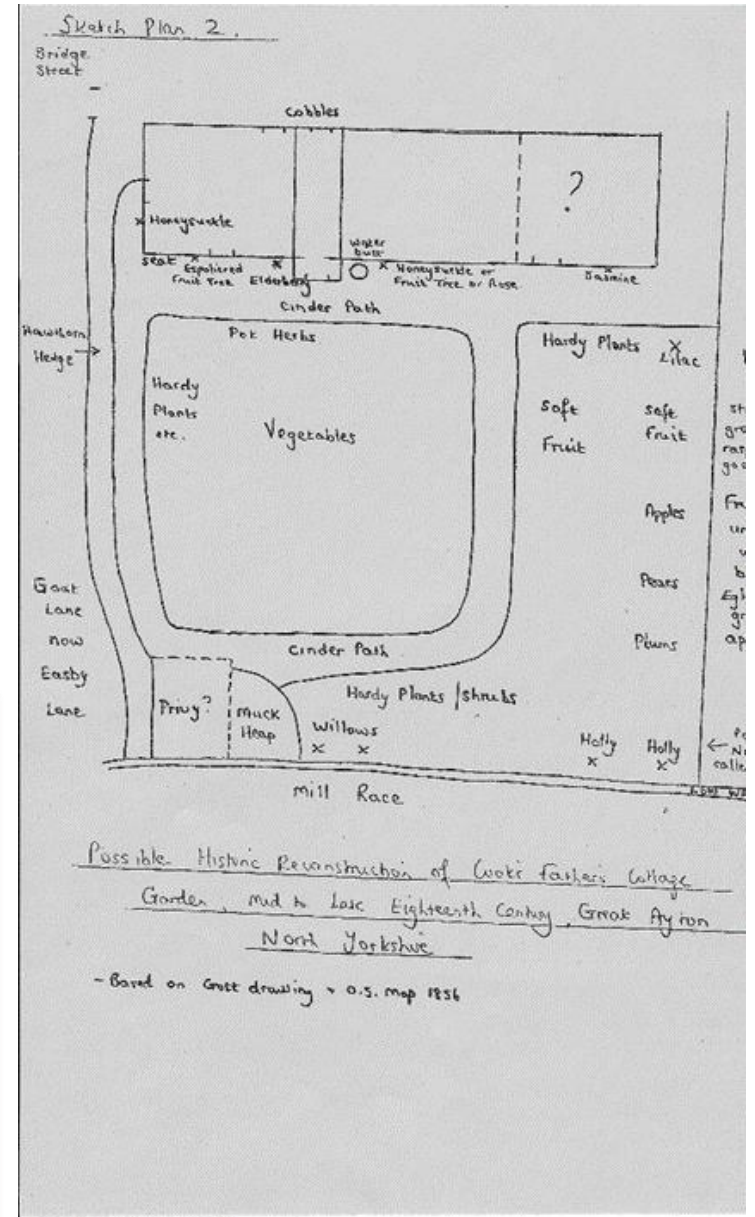 Sketch Plan 2.
Bridge
Street
Cobbles
?
Honeysuckle
Seat
Espaliered
Fruit Tree
Elderberry
Water
butt
Honeysuckle or
Fruit Tree or Rose
Jasmine
Cinder Path
Hawthorn
Hedge
Pot Herbs
Hardy
Plants
etc.
Vegetables
Hardy Plants
Lilac
Soft
Fruit
Soft
Fruit
Apples
Pears
Plums
Goat
Lane
now
Easby
Lane
Cinder Path
Privy?
Muck
Heap
Hardy Plants / shrubs
Willows
Holly
Holly
Mill Race
Possible Historic Reconstruction of Cook's Father's Cottage
Garden, mid to Late Eighteenth Century, Great Ayton
North Yorkshire
- Based on Gott drawing + O.S. map 1856